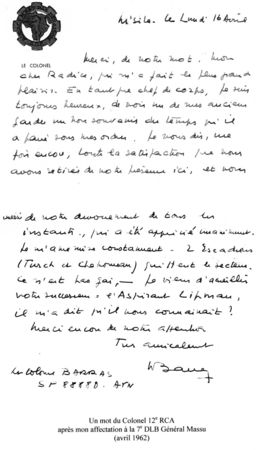 M'Sila. Le Lundi 16 Avril
LE COLONEL
Merci, de votre mot. Mon
cher Radice, qui m'a fait le plus grand
plaisir. En tant que chef de corps, je suis
toujours heureux, de voir un de mes anciens
garder un bon souvenir du temps qu'il
a passé sous mes ordres. Je vous dis, une
fois encore, toute la satisfaction que nous
avons retirée de votre présence ici, et vous
de votre dévouement de tous les
instants, qui a été apprécié
Je m'amenuise constamment - 2 Escadrons
(Tusch et ) le secteur.
Ce n'est pas gai, — Je viens d'accueillir
votre successeur : l'Aspirant Lipman,
il m'a dit qu'il vous connaissait?
Merci encore de votre attention
Très amicalement
Le Colonel BARRAS
SP 88880. AFN
Un mot du Colonel 12e RCA
après mon affectation à la 7e DLB Général Massu
(avril 1962)